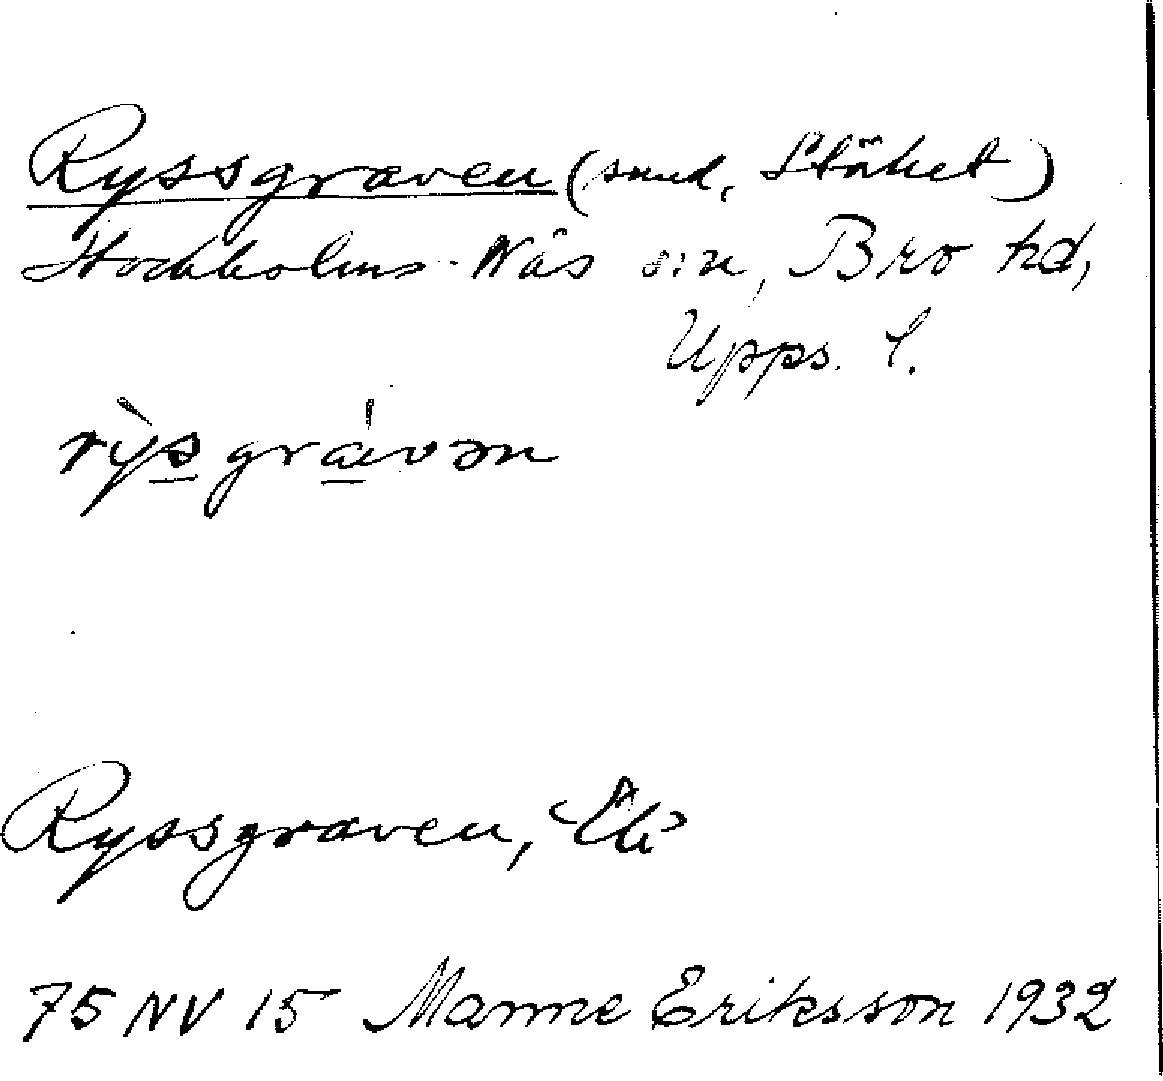 Ryssgraven (sund, Stäket)
Stockholms-Näs sn, Bro hd,
Upps. l.
rỳsgrávən
Ryssgraven,
75 NV 15 Manne Eriksson 1932